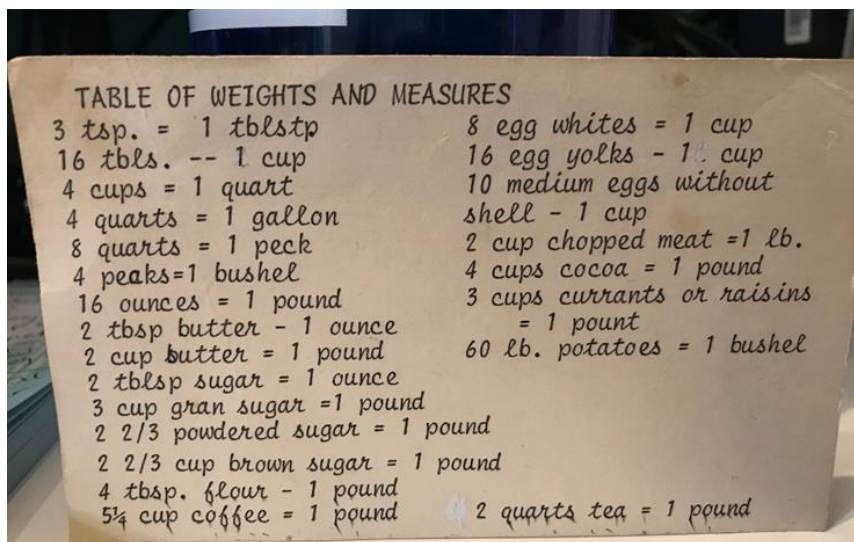 TABLE OF WEIGHTS AND MEASURES
3 tsp. = 1 tblstp
16 tbls. -- 1 cup
4 cups = 1 quart
4 quarts = 1 gallon
8 quarts = 1 peck
4 peaks=1 bushel
16 ounces = 1 pound
2 tbsp butter - 1 ounce
2 cup butter = 1 pound
2 tblsp sugar = 1 ounce
3 cup gran sugar =1 pound
2 2/3 powdered sugar = 1 pound
2 2/3 cup brown sugar = 1 pound
4 tbsp. flour - 1 pound
5¼ cup coffee = 1 pound
8 egg whites = 1 cup
16 egg yolks - 1 cup
10 medium eggs without
shell - 1 cup
2 cup chopped meat =1 lb.
4 cups cocoa = 1 pound
3 cups currants or raisins
= 1 pount
60 lb. potatoes = 1 bushel
2 quarts tea = 1 pound